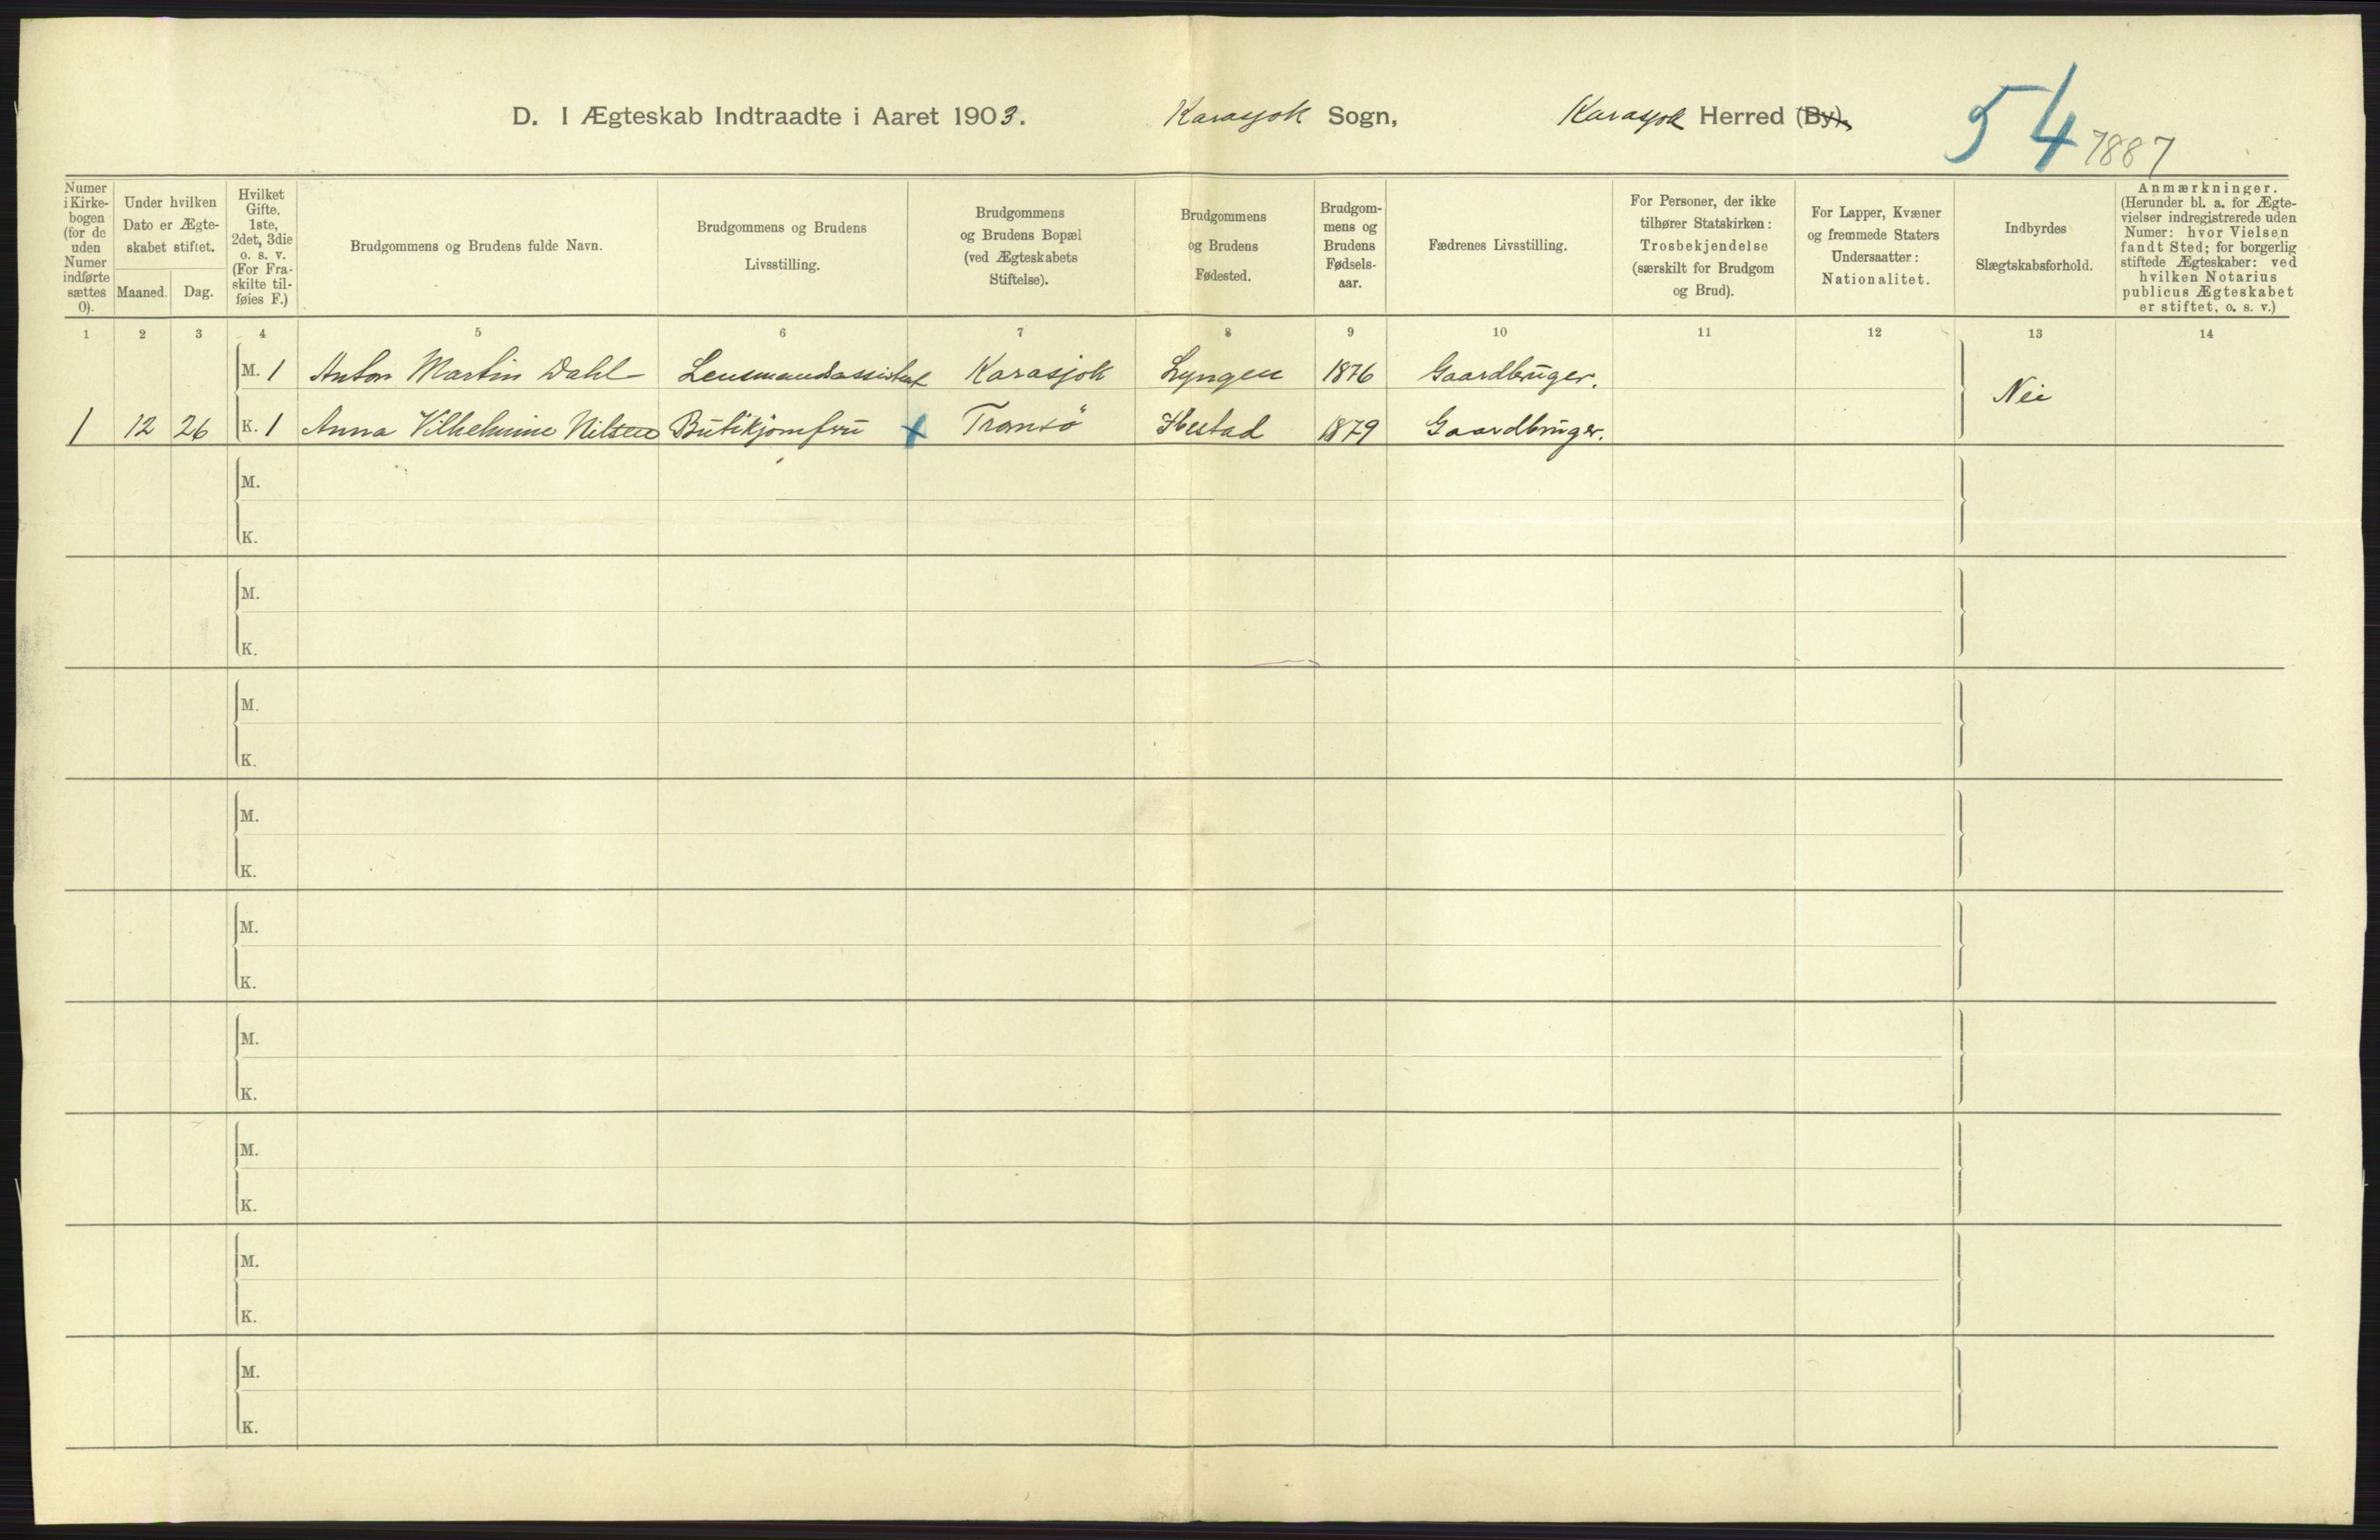 D. I Ægteskab Indtraadte i Aaret 1903. Karasjok Sogn, Karasjok Herred (By).
54 7887
Numer i Kirkebogen (for de uden Numer indførte sættes 0).
Under hvilken Dato er Ægteskabet stiftet.
Maaned. Dag.
Hvilket Gifte. 1ste, 2det, 3die o. s. v. (For Fraskilte tilføies F.)
Brudgommens og Brudens fulde Navn.
Brudgommens og Brudens Livsstilling.
Brudgommens og Brudens Bopæl (ved Ægteskabets Stiftelse).
Brudgommens og Brudens Fødested.
Brudgommens og Brudens Fødselsaar.
Fædrenes Livsstilling.
For Personer, der ikke tilhører Statskirken: Trosbekjendelse (særskilt for Brudgom og Brud).
For Lapper, Kvæner og fremmede Staters Undersaatter: Nationalitet.
Indbyrdes Slægtskabsforhold.
Anmærkninger. (Herunder bl. a. for Ægtevielser indregistrerede uden Numer: hvor Vielsen fandt Sted; for borgerlig stiftede Ægteskaber: ved hvilken Notarius publicus Ægteskabet er stiftet, o. s. v.)
1 2 3 4 5 6 7 8 9 10 11 12 13 14
M. 1 Anton Martin Dahl Lensmandsassistent Karasjok Lyngen 1876 Gaardbruger. Nei
1 12 26 K. 1 Anna Vilhelmine Nilsen Butikjomfru x Tromsö Ibestad 1879 Gaardbruger.
M.
K.
M.
K.
M.
K.
M.
K.
M.
K.
M.
K.
M.
K.
M.
K.
M.
K.